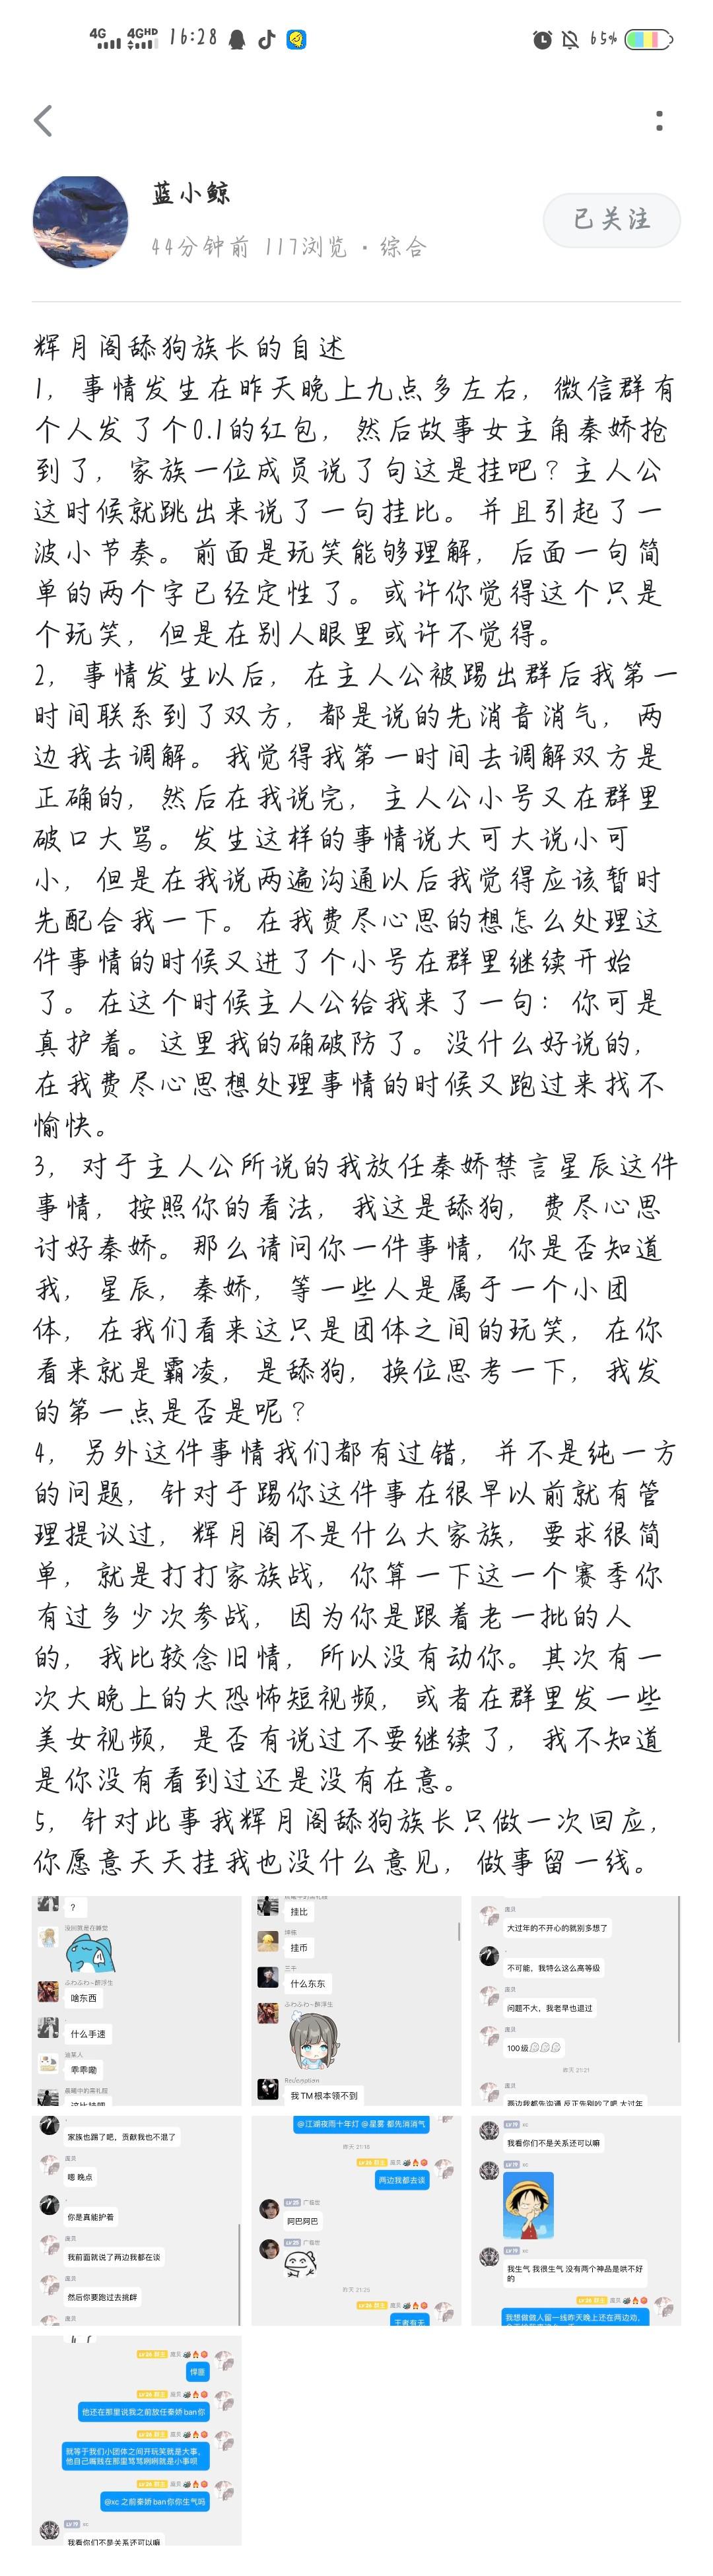 4G 4GHD 16:28 65%
蓝小鲸
44分钟前 117浏览·综合
已关注
辉月阁舔狗族长的自述
1，事情发生在昨天晚上九点多左右，微信群有
个人发了个0.1的红包，然后故事女主角秦娇抢
到了，家族一位成员说了句这是挂吧？主人公
这时候就跳出来说了一句挂比。并且引起了一
波小节奏。前面是玩笑能够理解，后面一句简
单的两个字已经定性了。或许你觉得这个只是
个玩笑，但是在别人眼里或许不觉得。
2，事情发生以后，在主人公被踢出群后我第一
时间联系到了双方，都是说的先消音消气，两
边我去调解。我觉得我第一时间去调解双方是
正确的，然后在我说完，主人公小号又在群里
破口大骂。发生这样的事情说大可大说小可
小，但是在我说两遍沟通以后我觉得应该暂时
先配合我一下。在我费尽心思的想怎么处理这
件事情的时候又进了个小号在群里继续开始
了。在这个时候主人公给我来了一句：你可是
真护着。这里我的确破防了。没什么好说的，
在我费尽心思想处理事情的时候又跑过来找不
愉快。
3，对于主人公所说的我放任秦娇禁言星辰这件
事情，按照你的看法，我这是舔狗，费尽心思
讨好秦娇。那么请问你一件事情，你是否知道
我，星辰，秦娇，等一些人是属于一个小团
体，在我们看来这只是团体之间的玩笑，在你
看来就是霸凌，是舔狗，换位思考一下，我发
的第一点是否是呢？
4，另外这件事情我们都有过错，并不是纯一方
的问题，针对于踢你这件事在很早以前就有管
理提议过，辉月阁不是什么大家族，要求很简
单，就是打打家族战，你算一下这一个赛季你
有过多少次参战，因为你是跟着老一批的人
的，我比较念旧情，所以没有动你。其次有一
次大晚上的大恐怖短视频，或者在群里发一些
美女视频，是否有说过不要继续了，我不知道
是你没有看到过还是没有在意。
5，针对此事我辉月阁舔狗族长只做一次回应，
你愿意天天挂我也没什么意见，做事留一线。
?
没回就是在睡觉
ふわふわ~醉浮生
啥东西
什么手速
追某人
乖乖嘞
挂比
挂币
三千
什么东东
ふわふわ~醉浮生
Redemption
我TM根本领不到
大过年的不开心的就别多想了
不可能，我特么这么高等级
问题不大，我老早也退过
100级
昨天 21:21
两边我都先沟通 反正先别吵了吧 大过年
家族也踢了吧，贡献我也不混了
嗯 晚点
你是真能护着
我前面就说了两边我都在谈
然后你要跑过去挑衅
@江湖夜雨十年灯 @星雾 都先消消气
昨天 21:18
两边我都去谈
阿巴阿巴
昨天 21:25
王者有无
LV19 xc
我看你们不是关系还可以嘛
LV19 xc
LV19 xc
我生气 我很生气 没有两个神品是哄不好
的
我想做做人留一线昨天晚上还在两边劝，
悍匪
他还在那里说我之前放任秦娇ban你
就等于我们小团体之间开玩笑就是大事，
他自己嘴贱在那里骂骂咧咧就是小事呗
@xc 之前秦娇ban你你生气吗
LV19 xc
我看你们不是关系还可以嘛